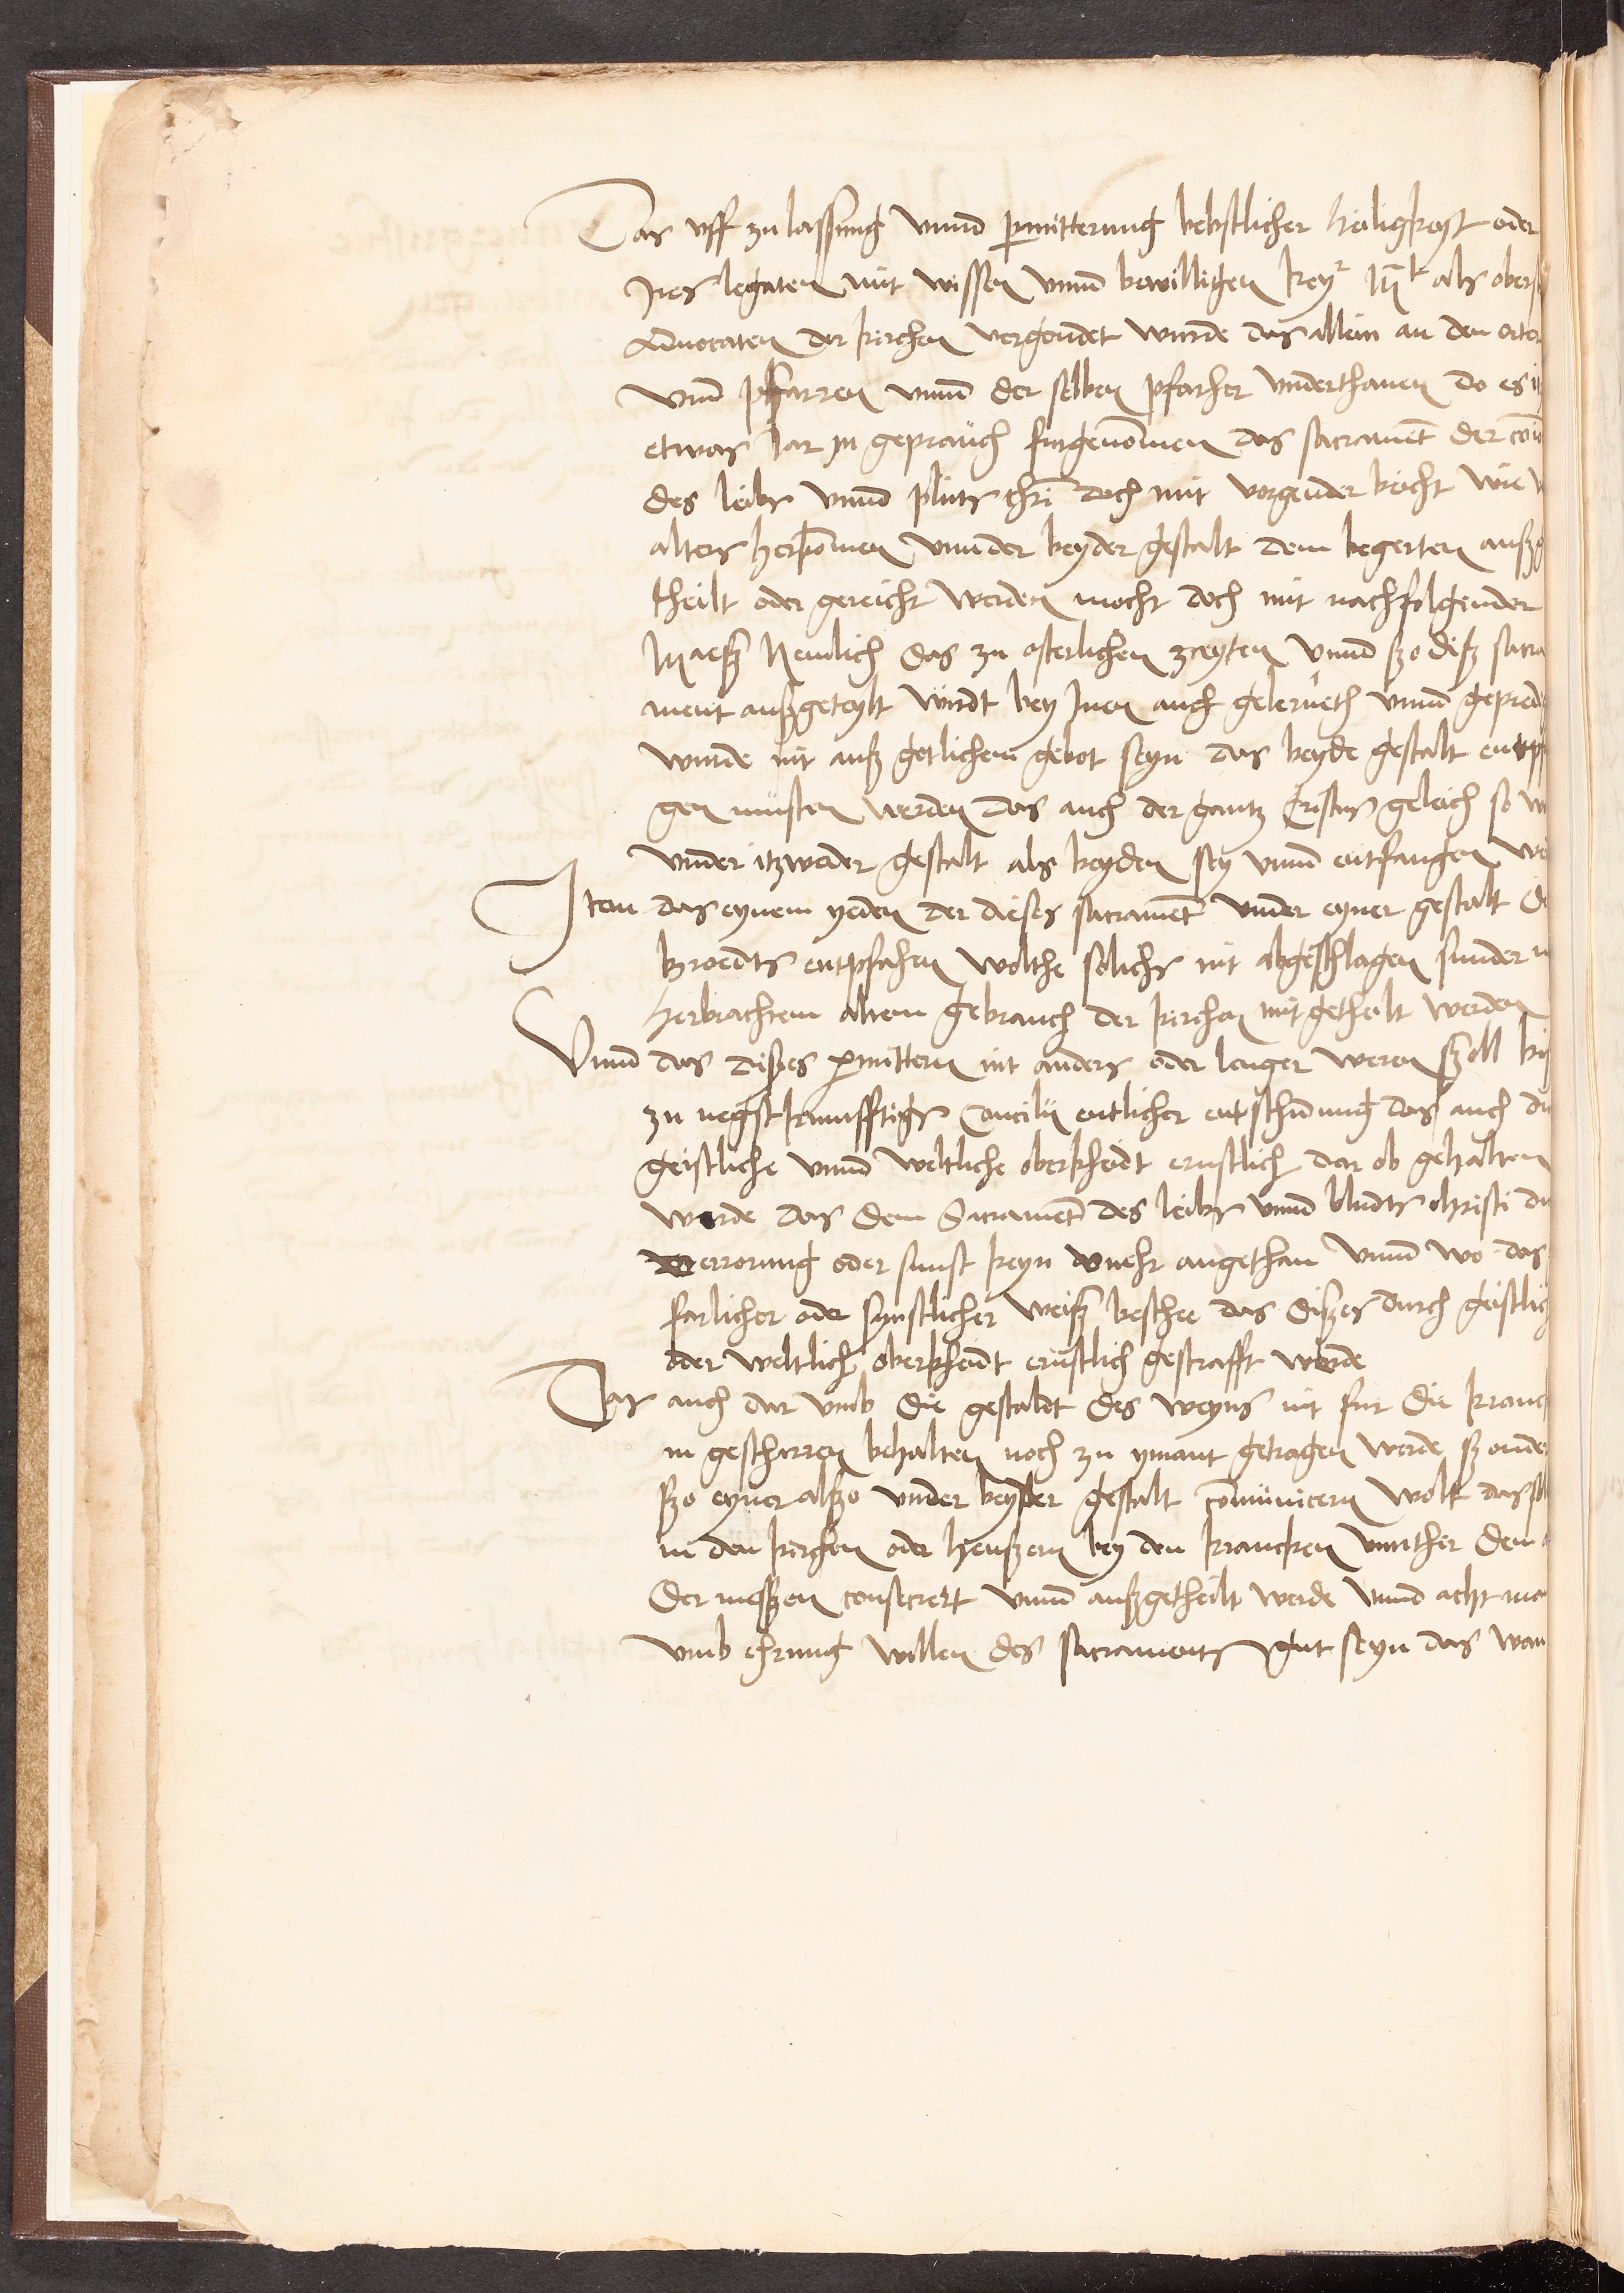 Das vff zu lassung vnnd permitterung bebstlicher heiligkeyt oder
Jres legaten mit wissen vnnd bewilligen keyr Mt als oberst
Aduocaten der kirchen vergondet wurde das allein an den orten
vnd Pfarren vnnd der selben pfarher vnderthanen do es itz
etwas Jar in geprauch furgenommen das sacrament der com
des leibs vnnd pluts chri doch mit vorgender beicht wie v
alters herkommen vnnder beyder gestalt dem begerten aussg
theilt oder gereicht werden mocht doch mit nachfolgender
Maess Nemlich das zu osterlichen zceyten vnnd szo disz sacra
ment auszgeteylt wirdt bey Jnen auch gelerneth vnnd gepredi
wurde nit ausz gotlichem gebot seyn das beyde gestalt entpf
gen musten werden das auch der gantz Cristus geleich so w
vnder itzweder gestalt als beyden sey vnnd entfangen we
Jtem das eynem yeden der dieses sacrament vnder eyner gestalt de
broedts entpfahen wolthe solichs nit abgeschlagen sunder n
herbrachtem altem gebrauch der kirchen mitgetheilt werden
Vnnd das disses permittern nit anders oder lenger weren szoll bis
zu negst kunfftigs Concilii entlicher entschidnung das auch du
geistliche vnnd weltliche oberkheidt ernstlich dar ob gehalten
werde das dem Sacrament des leibs vnnd bludts christi du
verrorung oder sunst keyn vnehr angethan vnnd wo das
farlicher oder synstlicher weisz beschee das disses durch geistlich
oder weltlich oberkheidt ernstlich gestrafft werde
Das auch dar vmb die gestaldt des weyns nit fur die kranck
in geschirren behalten noch zu ymant getragen werde szonder
szo eyner alszo vnder beyder gestalt communicern wolt dassel
in den kirchen oder heuszern bey den krancken vnnther dem
der messzen consecrert vnnd auszgetheilt werde vnnd acht ma
vmb ehrung willen des sacraments gut seyn das wan